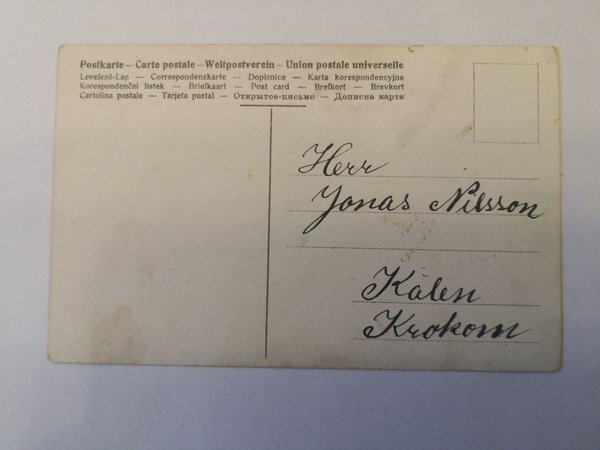 Postkarte – Carte postale – Weltpostverein – Union postale universelle
Levelező-Lap — Correspondenzkarte — Dopisnice — Karta korespondencyjna
Korespondenční lístek — Briefkaart — Post card — Brefkort — Brevkort
Cartolina postale — Tarjeta postal — Открытое-письмо — Дописна карта
Herr
Jonas Nilsson
Kälen
Krokom